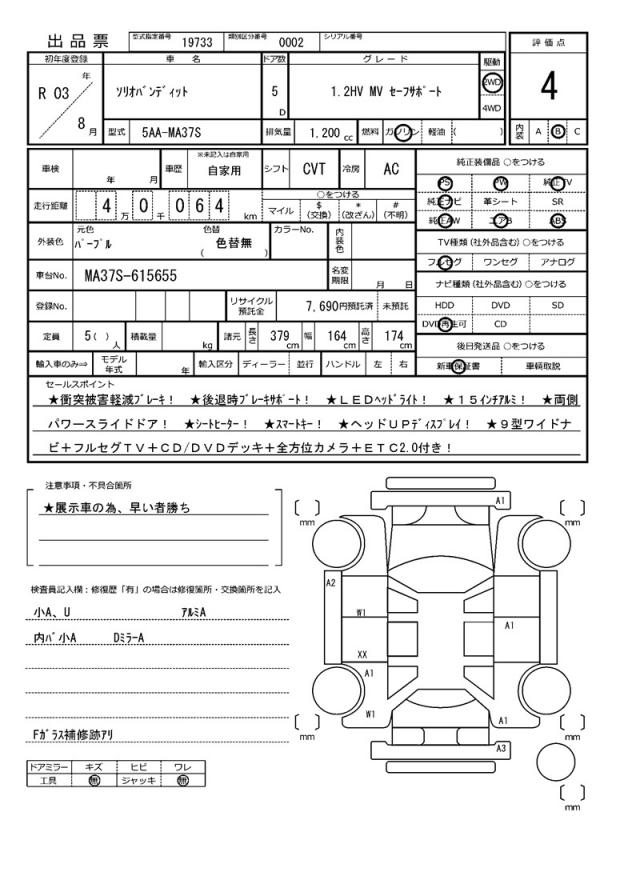 出品票
型式指定番号 19733 類別区分番号 0002 シリアル番号
初年度登録 車名 ドア数 グレード 駆動 評価点
R 03 年 8 月 ソリオバンディット 5 D 1.2HV MV セーフサポート 2WD 4WD 4
型式 5AA-MA37S 排気量 1.200 cc 燃料 ガソリン 軽油 ( ) 内装 A B C
車検 年 月 車歴 ※未記入は自家用 自家用 シフト CVT 冷房 AC 純正装備品 ○をつける
PS PW 純正TV
走行距離 4 万 0 千 0 6 4 km ○をつける 純正ナビ 革シート SR
マイル $ (交換) * (改ざん) # (不明) 純正AW エアB ABS
外装色 元色 パープル 色替 ( 色替無 ) カラーNo. 内装色 TV種類 (社外品含む) ○をつける
フルセグ ワンセグ アナログ
車台No. MA37S-615655 名変期限 月 日 ナビ種類 (社外品含む) ○をつける
登録No. リサイクル預託金 7,690円預託済 未預託 HDD DVD SD
DVD再生可 CD
定員 5( ) 人 積載量 kg 諸元 長さ 379 cm 幅 164 cm 高さ 174 cm 後日発送品 ○をつける
輸入車のみ⇒ モデル年式 年 輸入区分 ディーラー 並行 ハンドル 左 右 新車保証書 車輌取説
セールスポイント
★衝突被害軽減ブレーキ! ★後退時ブレーキサポート! ★LEDヘッドライト! ★15インチアルミ! ★両側
パワースライドドア! ★シートヒーター! ★スマートキー! ★ヘッドUPディスプレイ! ★9型ワイドナ
ビ+フルセグTV+CD/DVDデッキ+全方位カメラ+ETC2.0付き!
注意事項・不具合箇所
★展示車の為、早い者勝ち
検査員記入欄:修復歴「有」の場合は修復箇所・交換箇所を記入
小A、U アルミA
内バ小A DミラーA
Fガラス補修跡アリ
ドアミラー キズ ヒビ ワレ
工具 無 ジャッキ 無
A1
mm
mm
A2
W1
A1
XX
A1
W1
A1
mm
mm
A3
mm